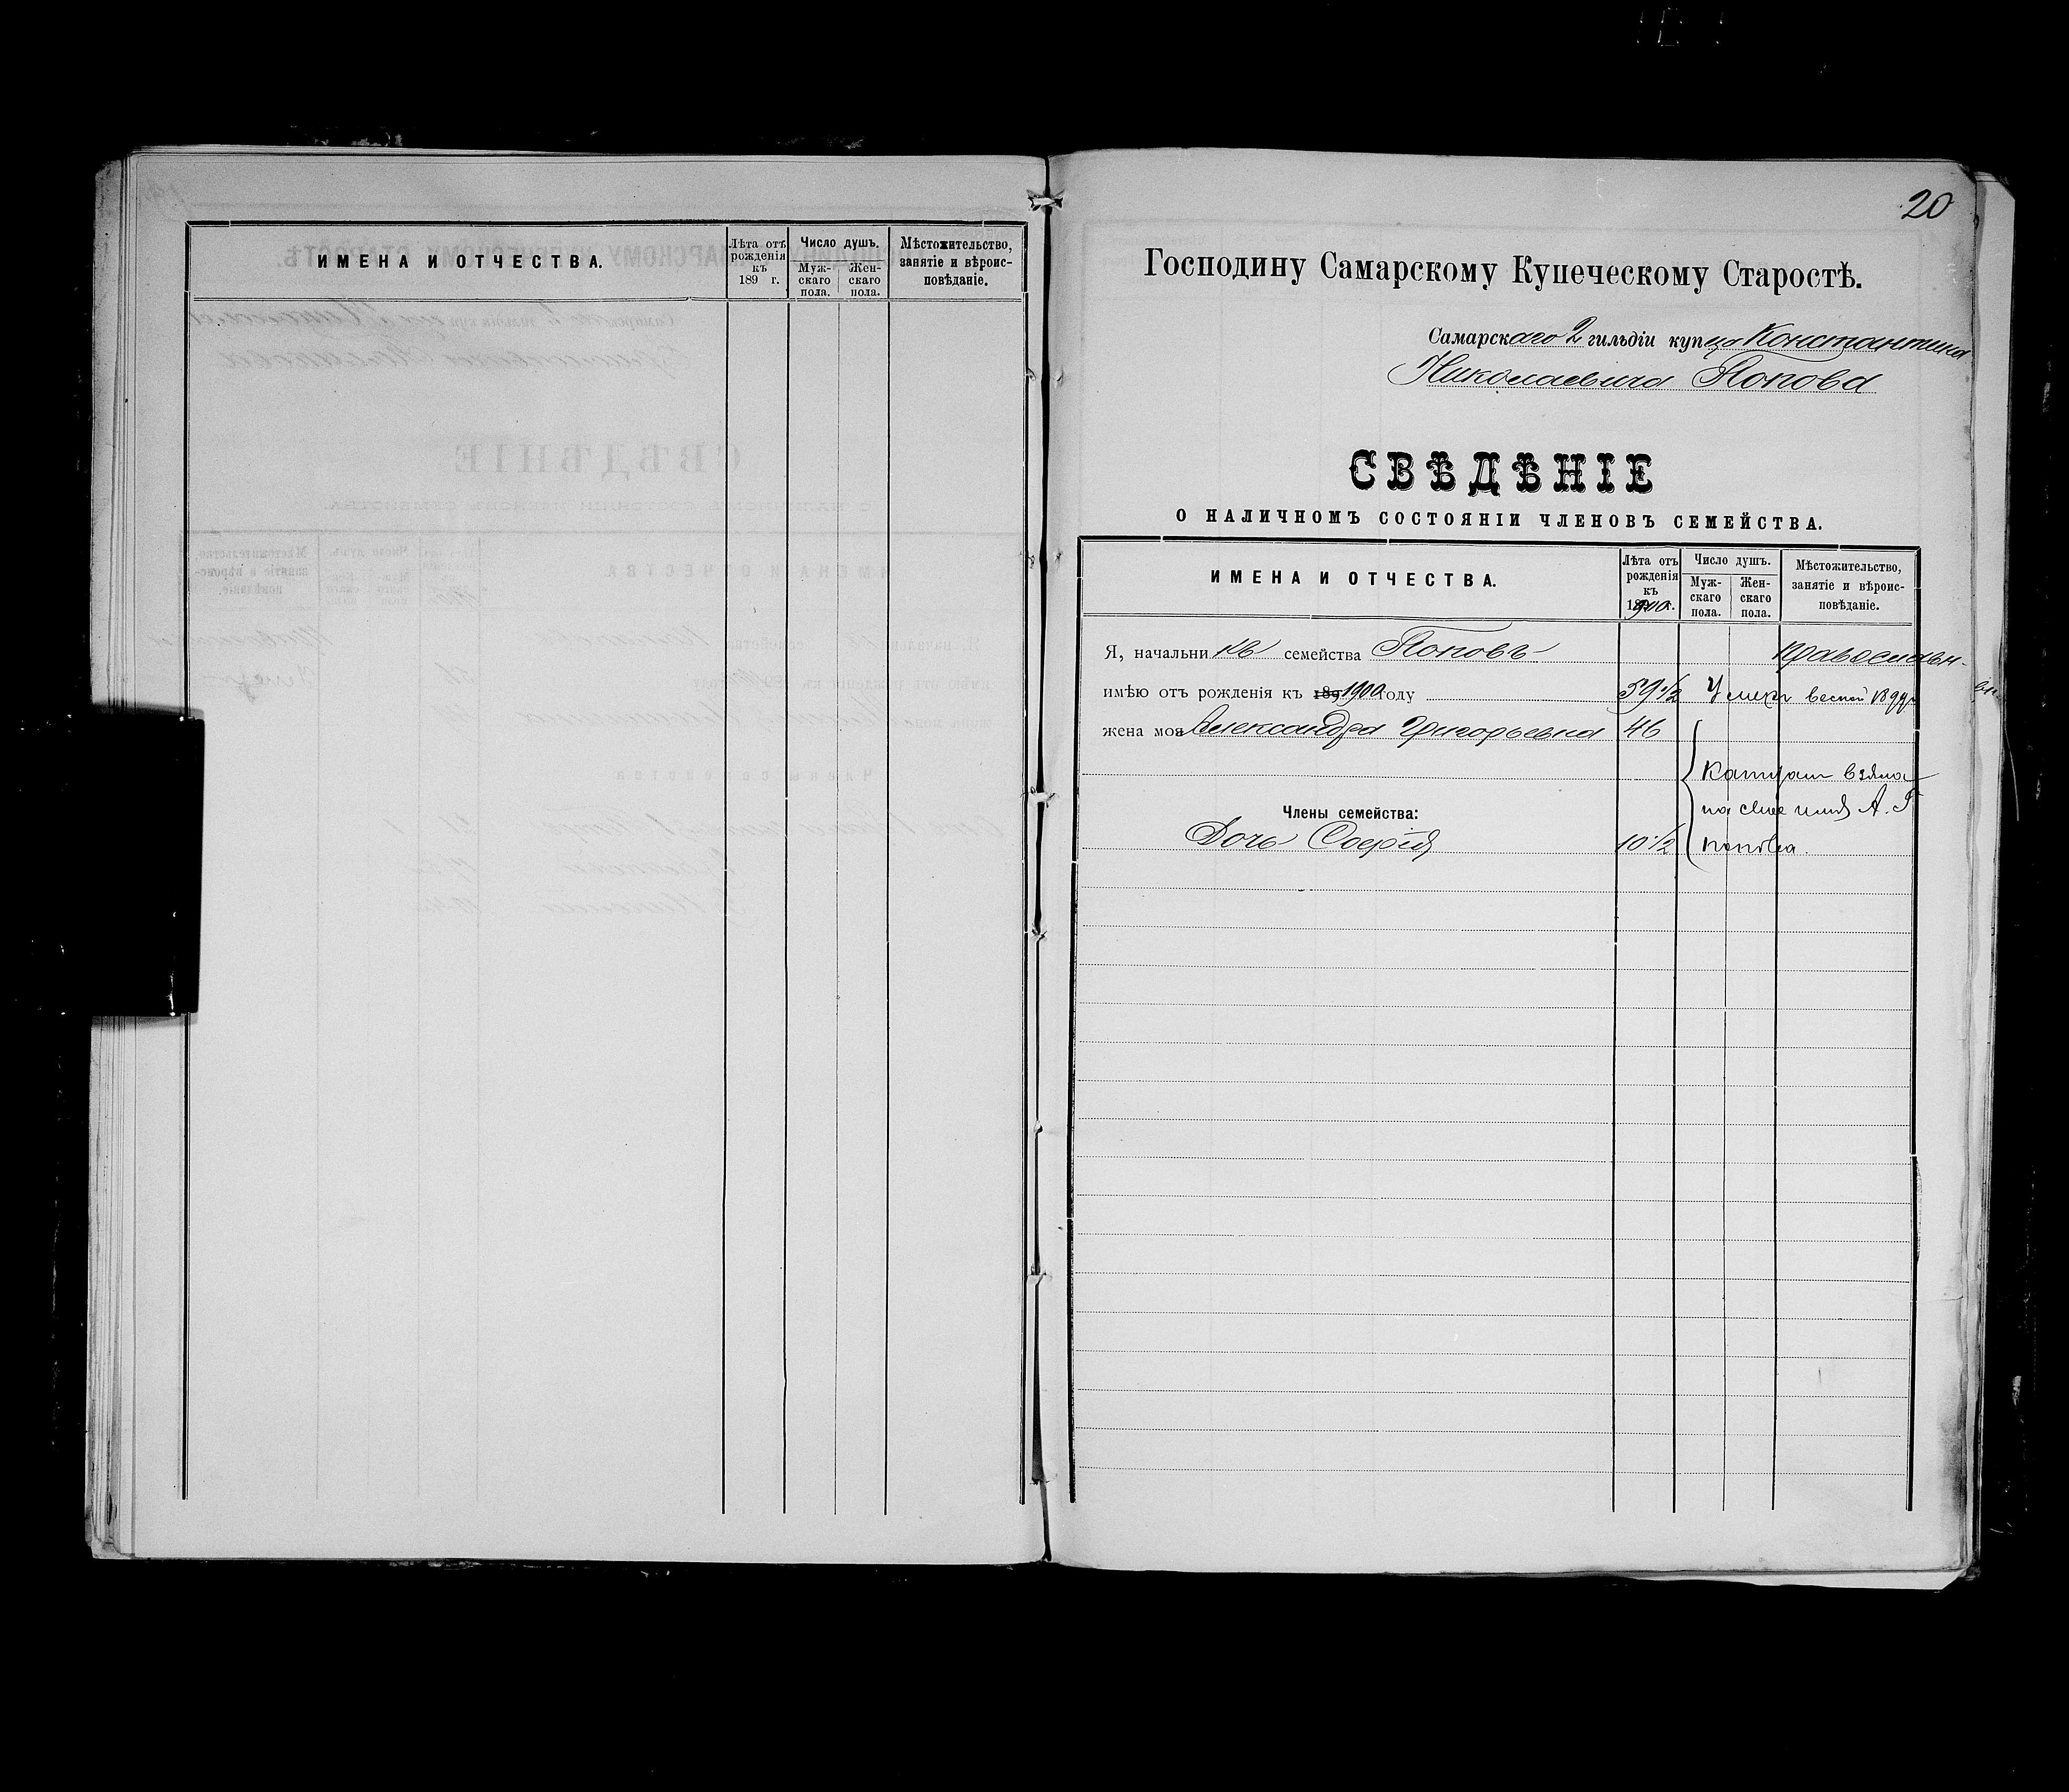 ИМЕНА И ОТЧЕСТВА.
Лѣта отъ рожденія къ 189 г.
Число душъ.
Мужскаго пола.
Женскаго пола.
Мѣстожительство, занятіе и вѣроисповѣданіе.
20
Господину Самарскому Купеческому Старостѣ.
Самарскаго 2 гильдіи купца Константина
Николаевича Попова
СВѢДѢНІЕ
О НАЛИЧНОМЪ СОСТОЯНІИ ЧЛЕНОВЪ СЕМЕЙСТВА.
ИМЕНА И ОТЧЕСТВА.
Лѣта отъ рожденія къ 1900 г.
Число душъ.
Мужскаго пола.
Женскаго пола.
Мѣстожительство, занятіе и вѣроисповѣданіе.
Я, начальникъ семейства Поповъ православн.
имѣю отъ рожденія къ 189 1900 году 59 1/2 Умеръ весной 1899 г
жена моя Александра Григорьевна 46
Капитал взяла
на свое имя А. Г
Члены семейства:
Дочь Софія 10 1/2 Попова.